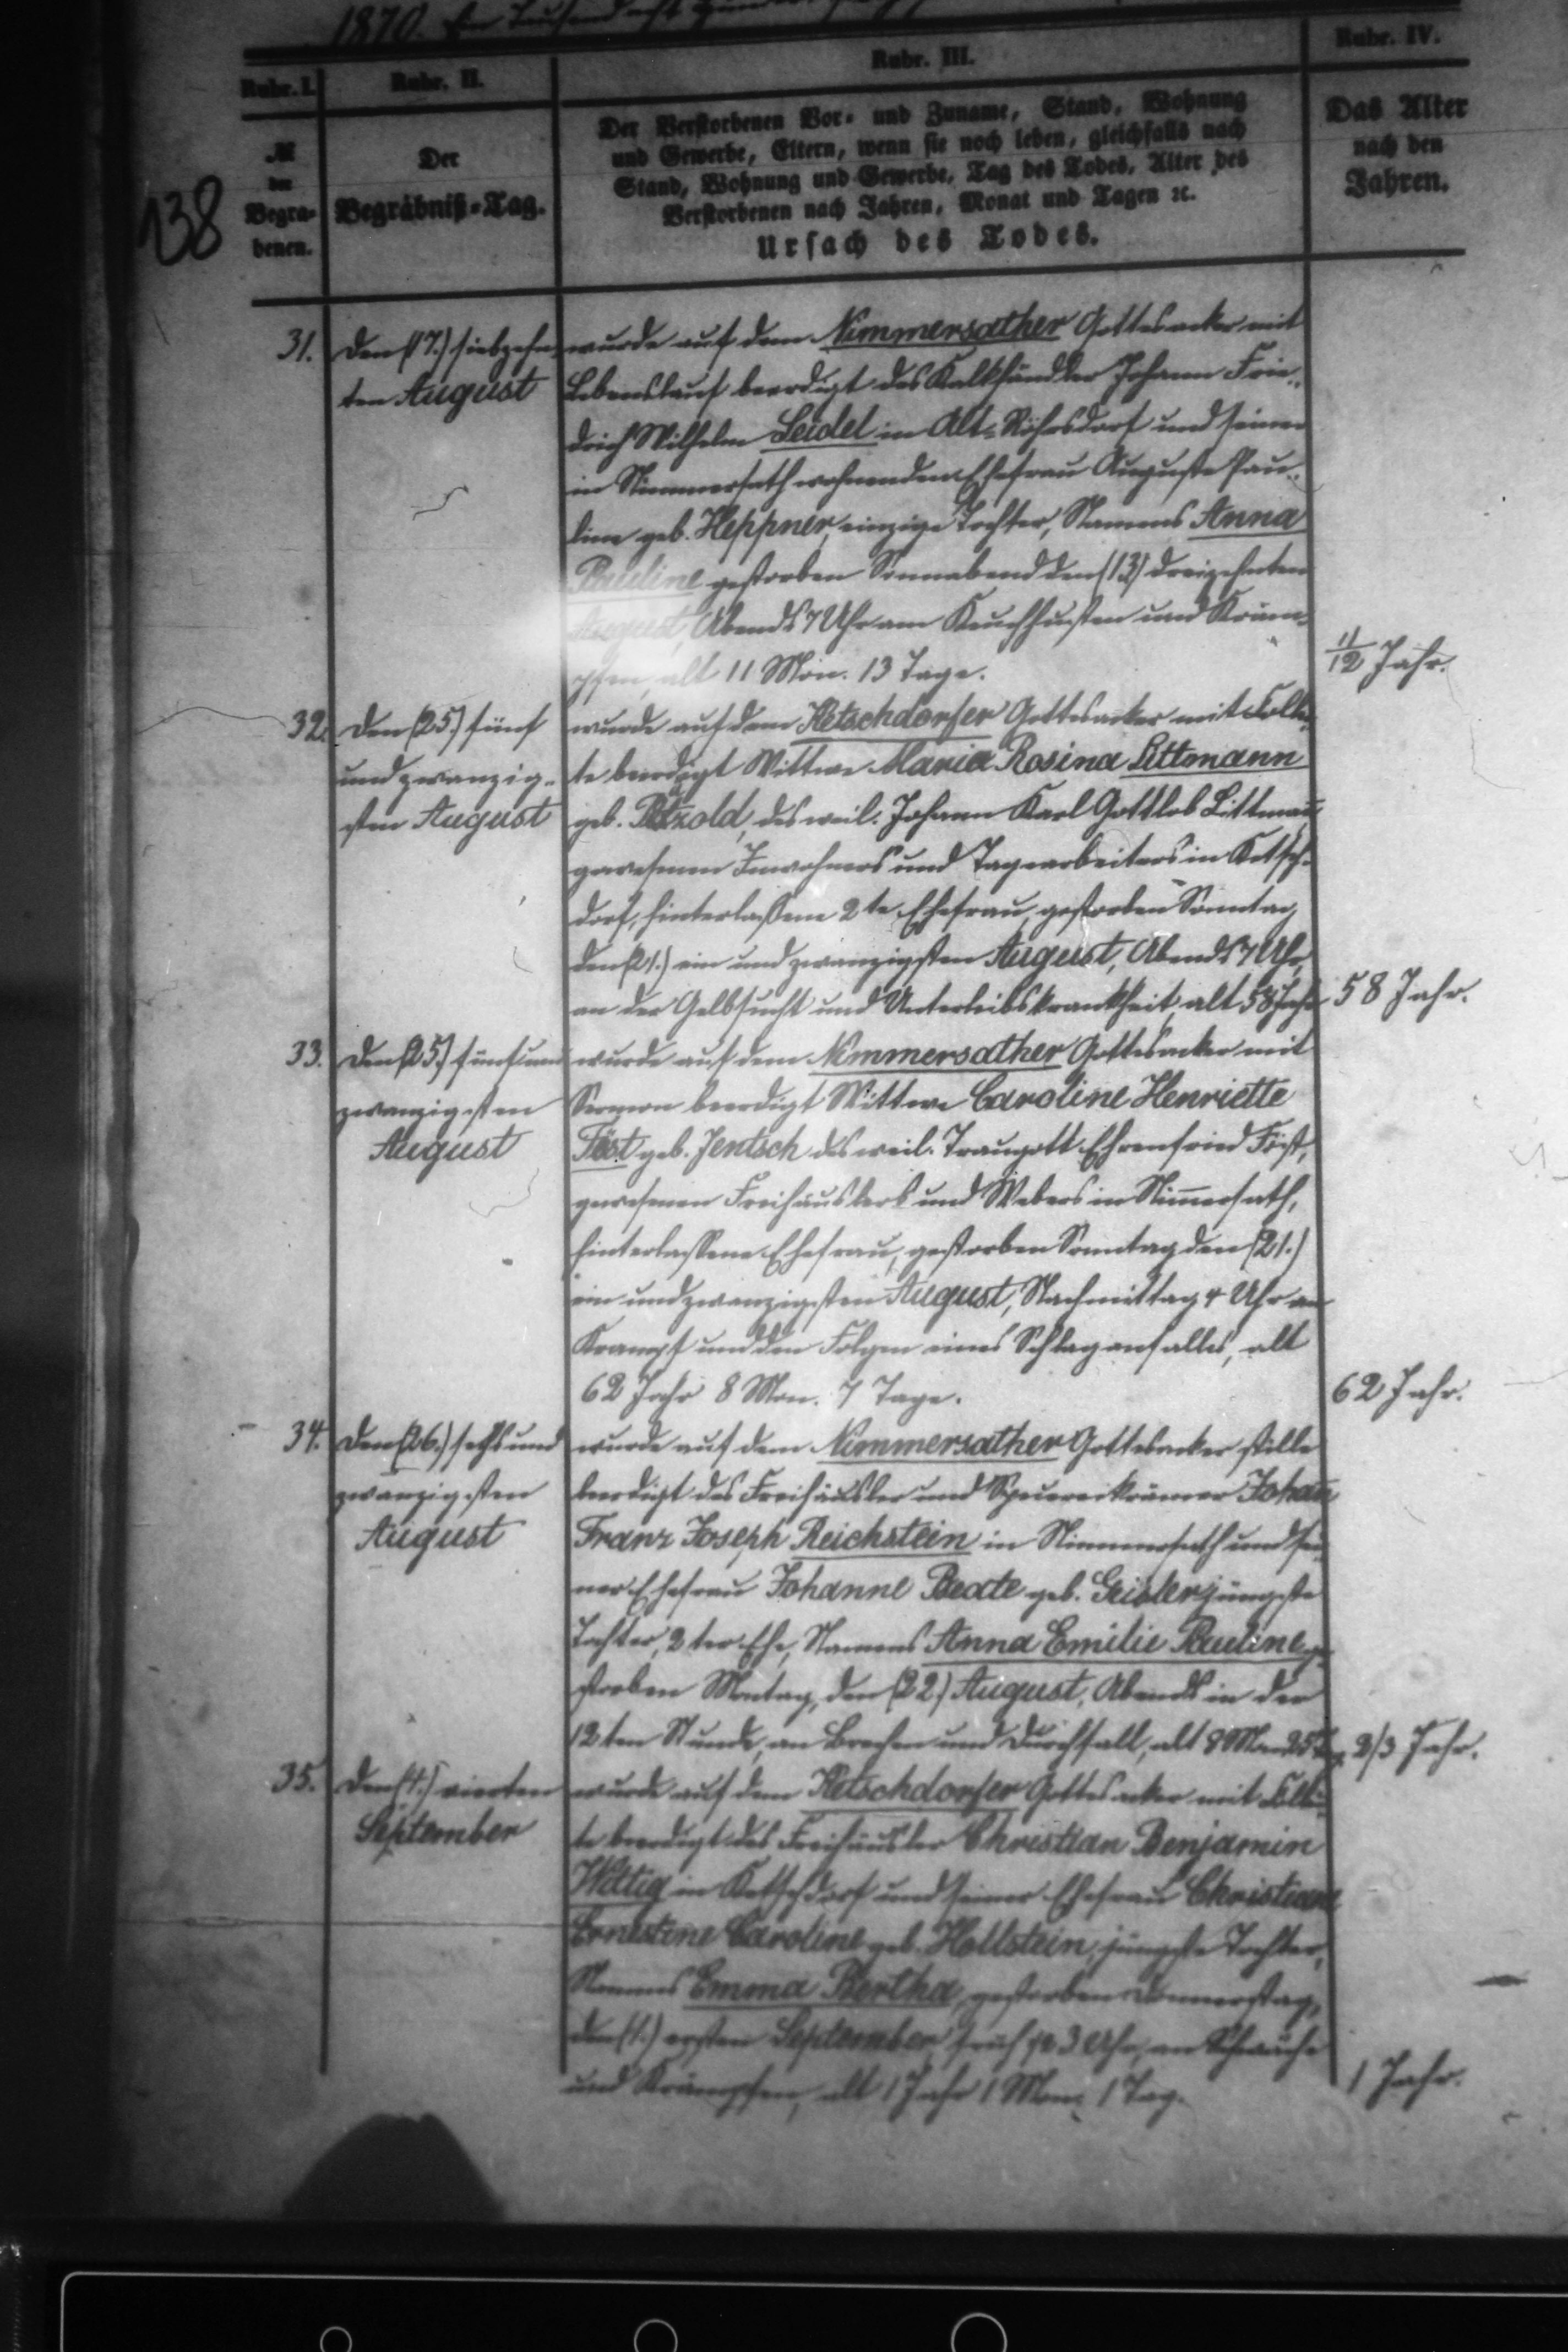 1870. Ein Tausend acht Hundert
Rubr. I.
Rubr. II.
Rubr. III.
Rubr. IV.
138
№
der
Begra-
benen.
Der
Begräbniß-Tag.
Der Verstorbenen Vor- und Zuname, Stand, Wohnung
und Gewerbe, Eltern, wenn sie noch leben, gleichfalls nach
Stand, Wohnung und Gewerbe, Tag des Todes, Alter des
Verstorbenen nach Jahren, Monat und Tagen ꝛc.
Ursach des Todes.
Das Alter
nach den
Jahren.
31.
den (17.) siebzehn-
ten August
wurde auf dem Nimmersather Gottesacker mit
Lebenslauf beerdigt des Kalkhändler Johann Frie-
drich Wilhelm Seidel in Alt-Röhrsdorf und seiner
in Nimmersath wohnenden Ehefrau Auguste Pau-
line geb. Heppner, einzige Tochter, Namens Anna
Pauline gestorben Sonnabend den (13) dreizehnten
August, Abends 7 Uhr am Keuchhusten und Kräm-
pfen, alt 11 Mon. 13 Tage.
11/12 Jahr.
32.
den (25.) fünf
und zwanzig-
sten August
wurde auf dem Ketschdorfer Gottesacker mit Collec-
te beerdigt Wittwe Maria Rosina Littmann
geb. Pätzold, des weil. Johann Karl Gottlob Littmann
gewesenen Inwohners und Tagearbeiters in Ketsch-
dorf, hinterlaßene 2te Ehefrau, gestorben Sonntag
den (21.) ein und zwanzigsten August, Abends 7 Uhr,
an der Gelbsucht und Unterleibskrankheit alt 58 Jahr
58 Jahr.
33.
den (25.) fünf und
zwanzigsten
August
wurde auf dem Nimmersather Gottesacker mit
Sermon beerdigt Wittwe Caroline Henriette
Föst geb. Jentsch des weil. Traugott Ehrenfried Föst,
gewesenen Freihäuslers und Webers in Nimersath,
hinterlassene Ehefrau, gestorben Sonntag den (21.)
ein und zwanzigsten August, Nachmittag 4 Uhr an
Krampf und den Folgen eines Schlaganfalles, alt
62 Jahr 8 Mon. 7 Tage.
62 Jahr.
34.
den (26.) sechs und
zwanzigsten
August
wurde auf dem Nimmersather Gottesacker stille
beerdigt des Freihäusler und Spezereikrämer Johann
Franz Joseph Reichstein in Nimmersath und sei-
ner Ehefrau Johanne Beate geb. Geisler jüngste
Tochter, 2ter Ehe, Namens Anna Emilie Pauline ge-
storben Montag, den (22.) August, Abends in der
12ten Stunde, an Brechen und Durchfall, alt 8 Mon. 25 Tag
2/3 Jahr.
35.
den (4.) vierten
September
wurde auf dem Ketschdorfer Gottesacker mit Collec-
te beerdigt des Freihäusler Christian Benjamin
Wittig in Ketschdorf und seiner Ehefrau Christiane
Ernestine Caroline geb. Hollstein, jüngste Tochter,
Namens Emma Bertha, gestorben Donnerstag,
den (1.) ersten September früh 3 Uhr, an Schwäche
und Krämpfen, alt 1 Jahr 1 Mon. 1 Tag.
1 Jahr.